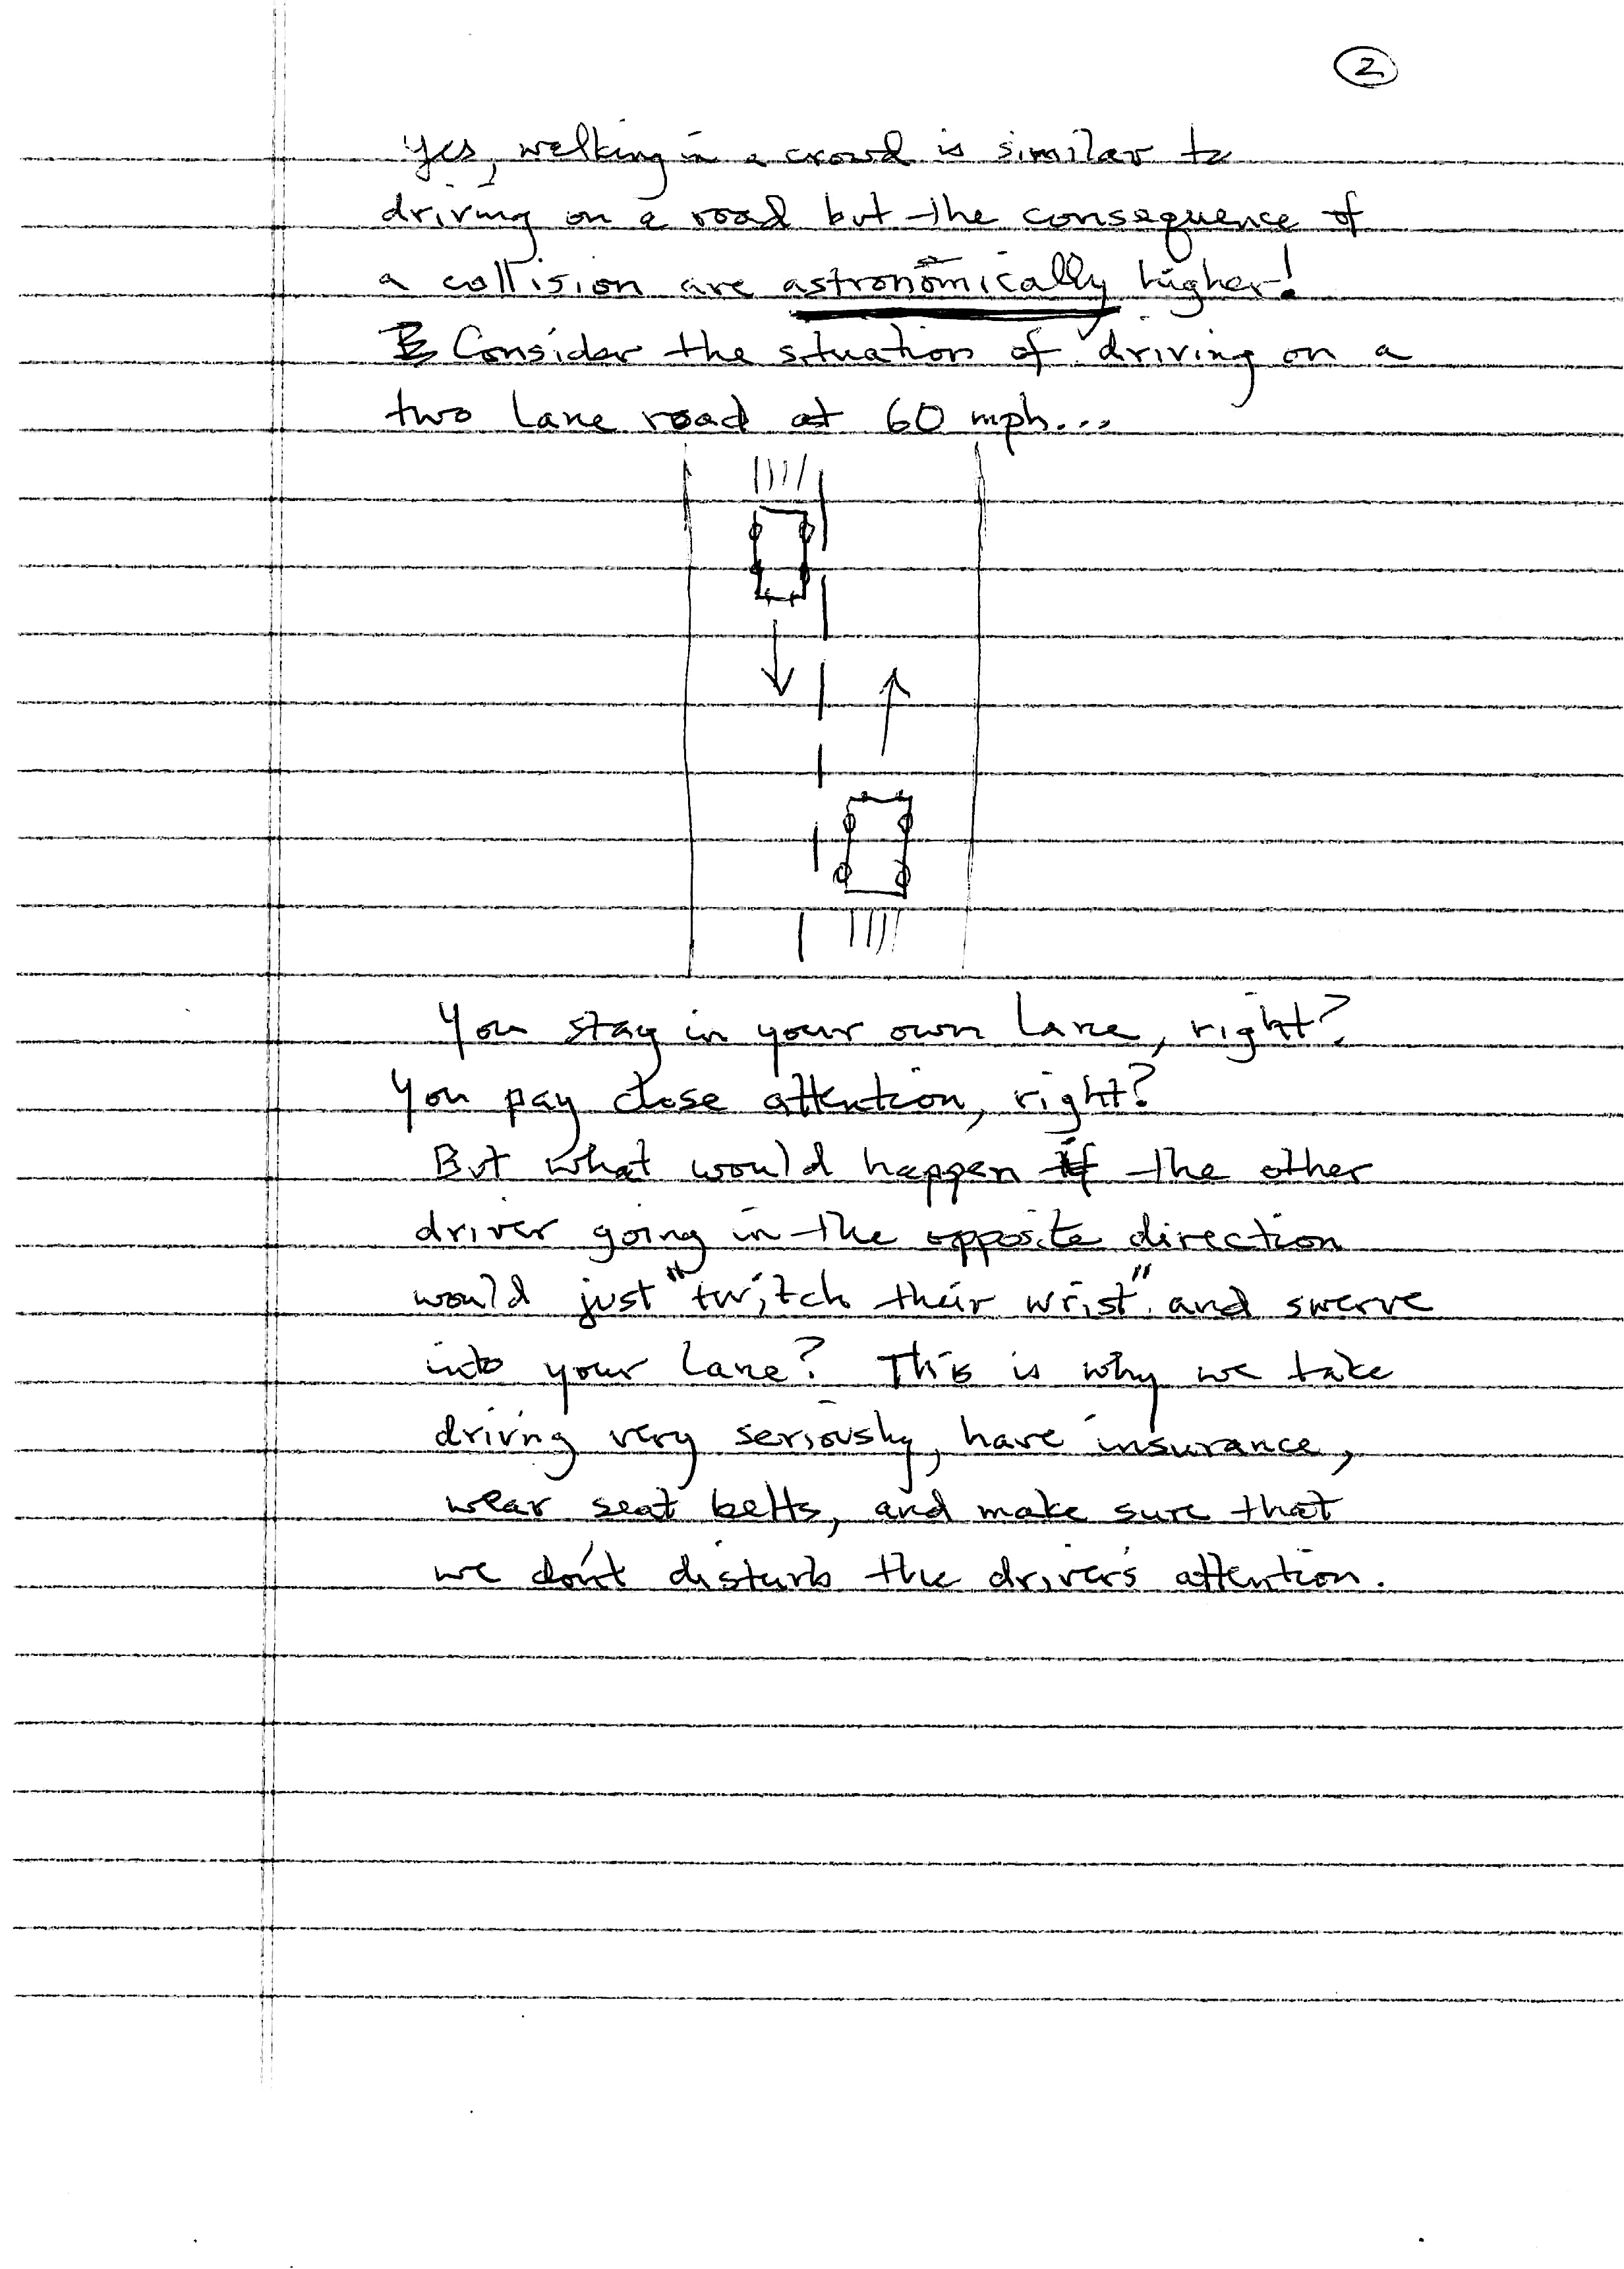 2
Yes, walking in a crowd is similar to
driving on a road but the consequence of
a collision are astronomically higher!
Consider the situation of driving on a
two lane road at 60 mph...
You stay in your own lane, right?
You pay close attention, right?
But what would happen if the other
driver going in the opposite direction
would just "twitch their wrist" and swerve
into your lane? This is why we take
driving very seriously, have insurance,
wear seat belts, and make sure that
we don't disturb the driver's attention.